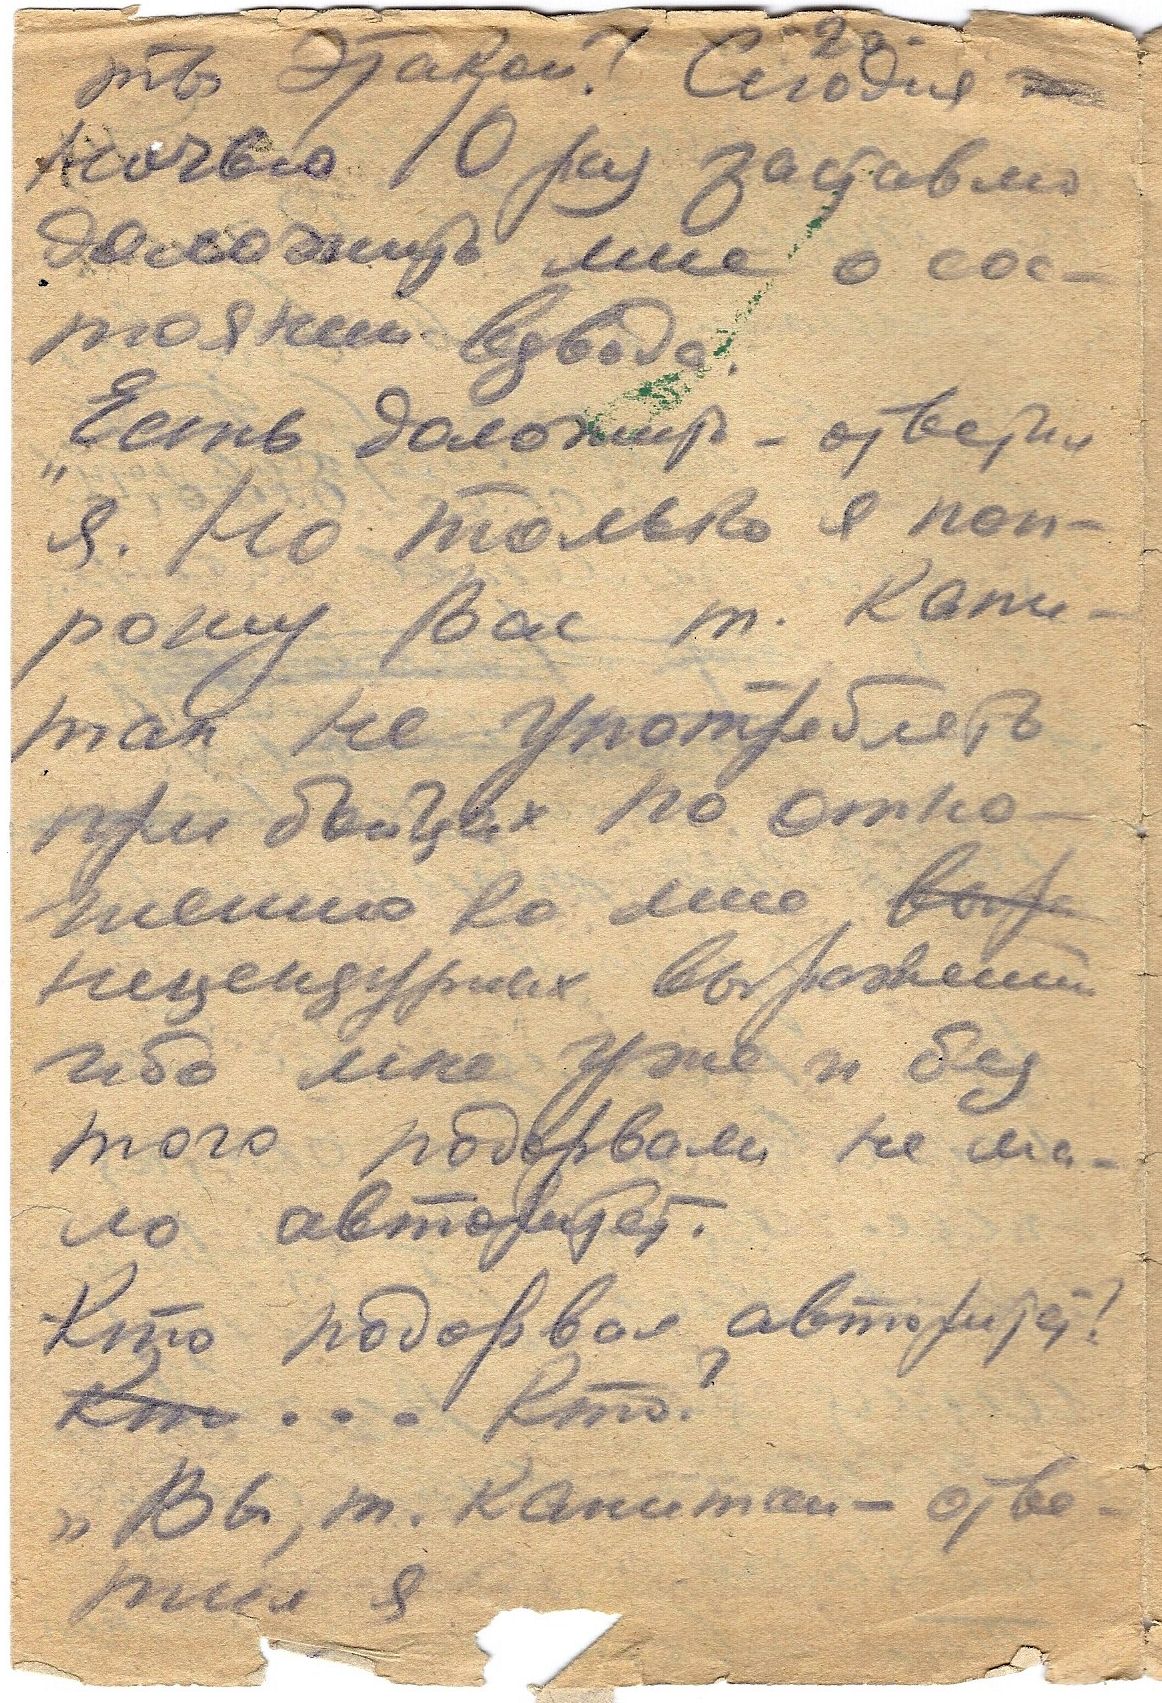 -20-
ты Этакой! Сегодня
ночью 10 раз заставлю
доложить мне о сос-
тоянии взвода.
„Есть доложить - ответил
я. Но только я поп-
рошу Вас т. Капи-
тан не употреблять
при бойцах по отно-
шению ко мне, выра
нецензурных выражений
ибо мне уже и без
того подорвали не ма-
ло авторитет.
Кто подорвал авторитет!
Кто . . . Кто?
„Вы, т. Капитан - отве-
тил я